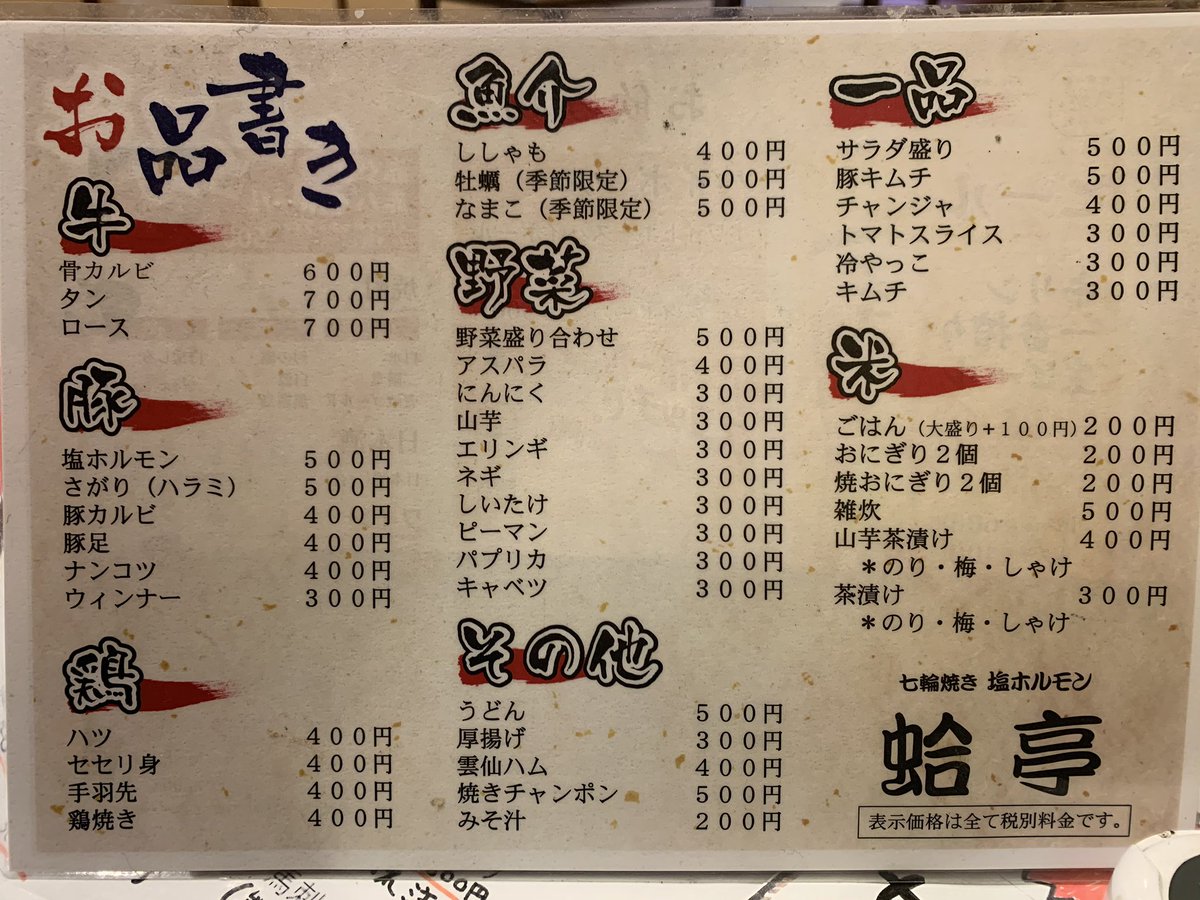 お品書き
牛
骨カルビ 600円
タン 700円
ロース 700円
豚
塩ホルモン 500円
さがり（ハラミ） 500円
豚カルビ 400円
豚足 400円
ナンコツ 400円
ウィンナー 300円
鶏
ハツ 400円
セセリ身 400円
手羽先 400円
鶏焼き 400円
魚介
ししゃも 400円
牡蠣（季節限定） 500円
なまこ（季節限定） 500円
野菜
野菜盛り合わせ 500円
アスパラ 400円
にんにく 300円
山芋 300円
エリンギ 300円
ネギ 300円
しいたけ 300円
ピーマン 300円
パプリカ 300円
キャベツ 300円
その他
うどん 500円
厚揚げ 300円
雲仙ハム 400円
焼きチャンポン 500円
みそ汁 200円
一品
サラダ盛り 500円
豚キムチ 500円
チャンジャ 400円
トマトスライス 300円
冷やっこ 300円
キムチ 300円
米
ごはん（大盛り＋１００円） 200円
おにぎり２個 200円
焼おにぎり２個 200円
雑炊 500円
山芋茶漬け 400円
＊のり・梅・しゃけ
茶漬け 300円
＊のり・梅・しゃけ
七輪焼き 塩ホルモン
蛤亭
表示価格は全て税別料金です。